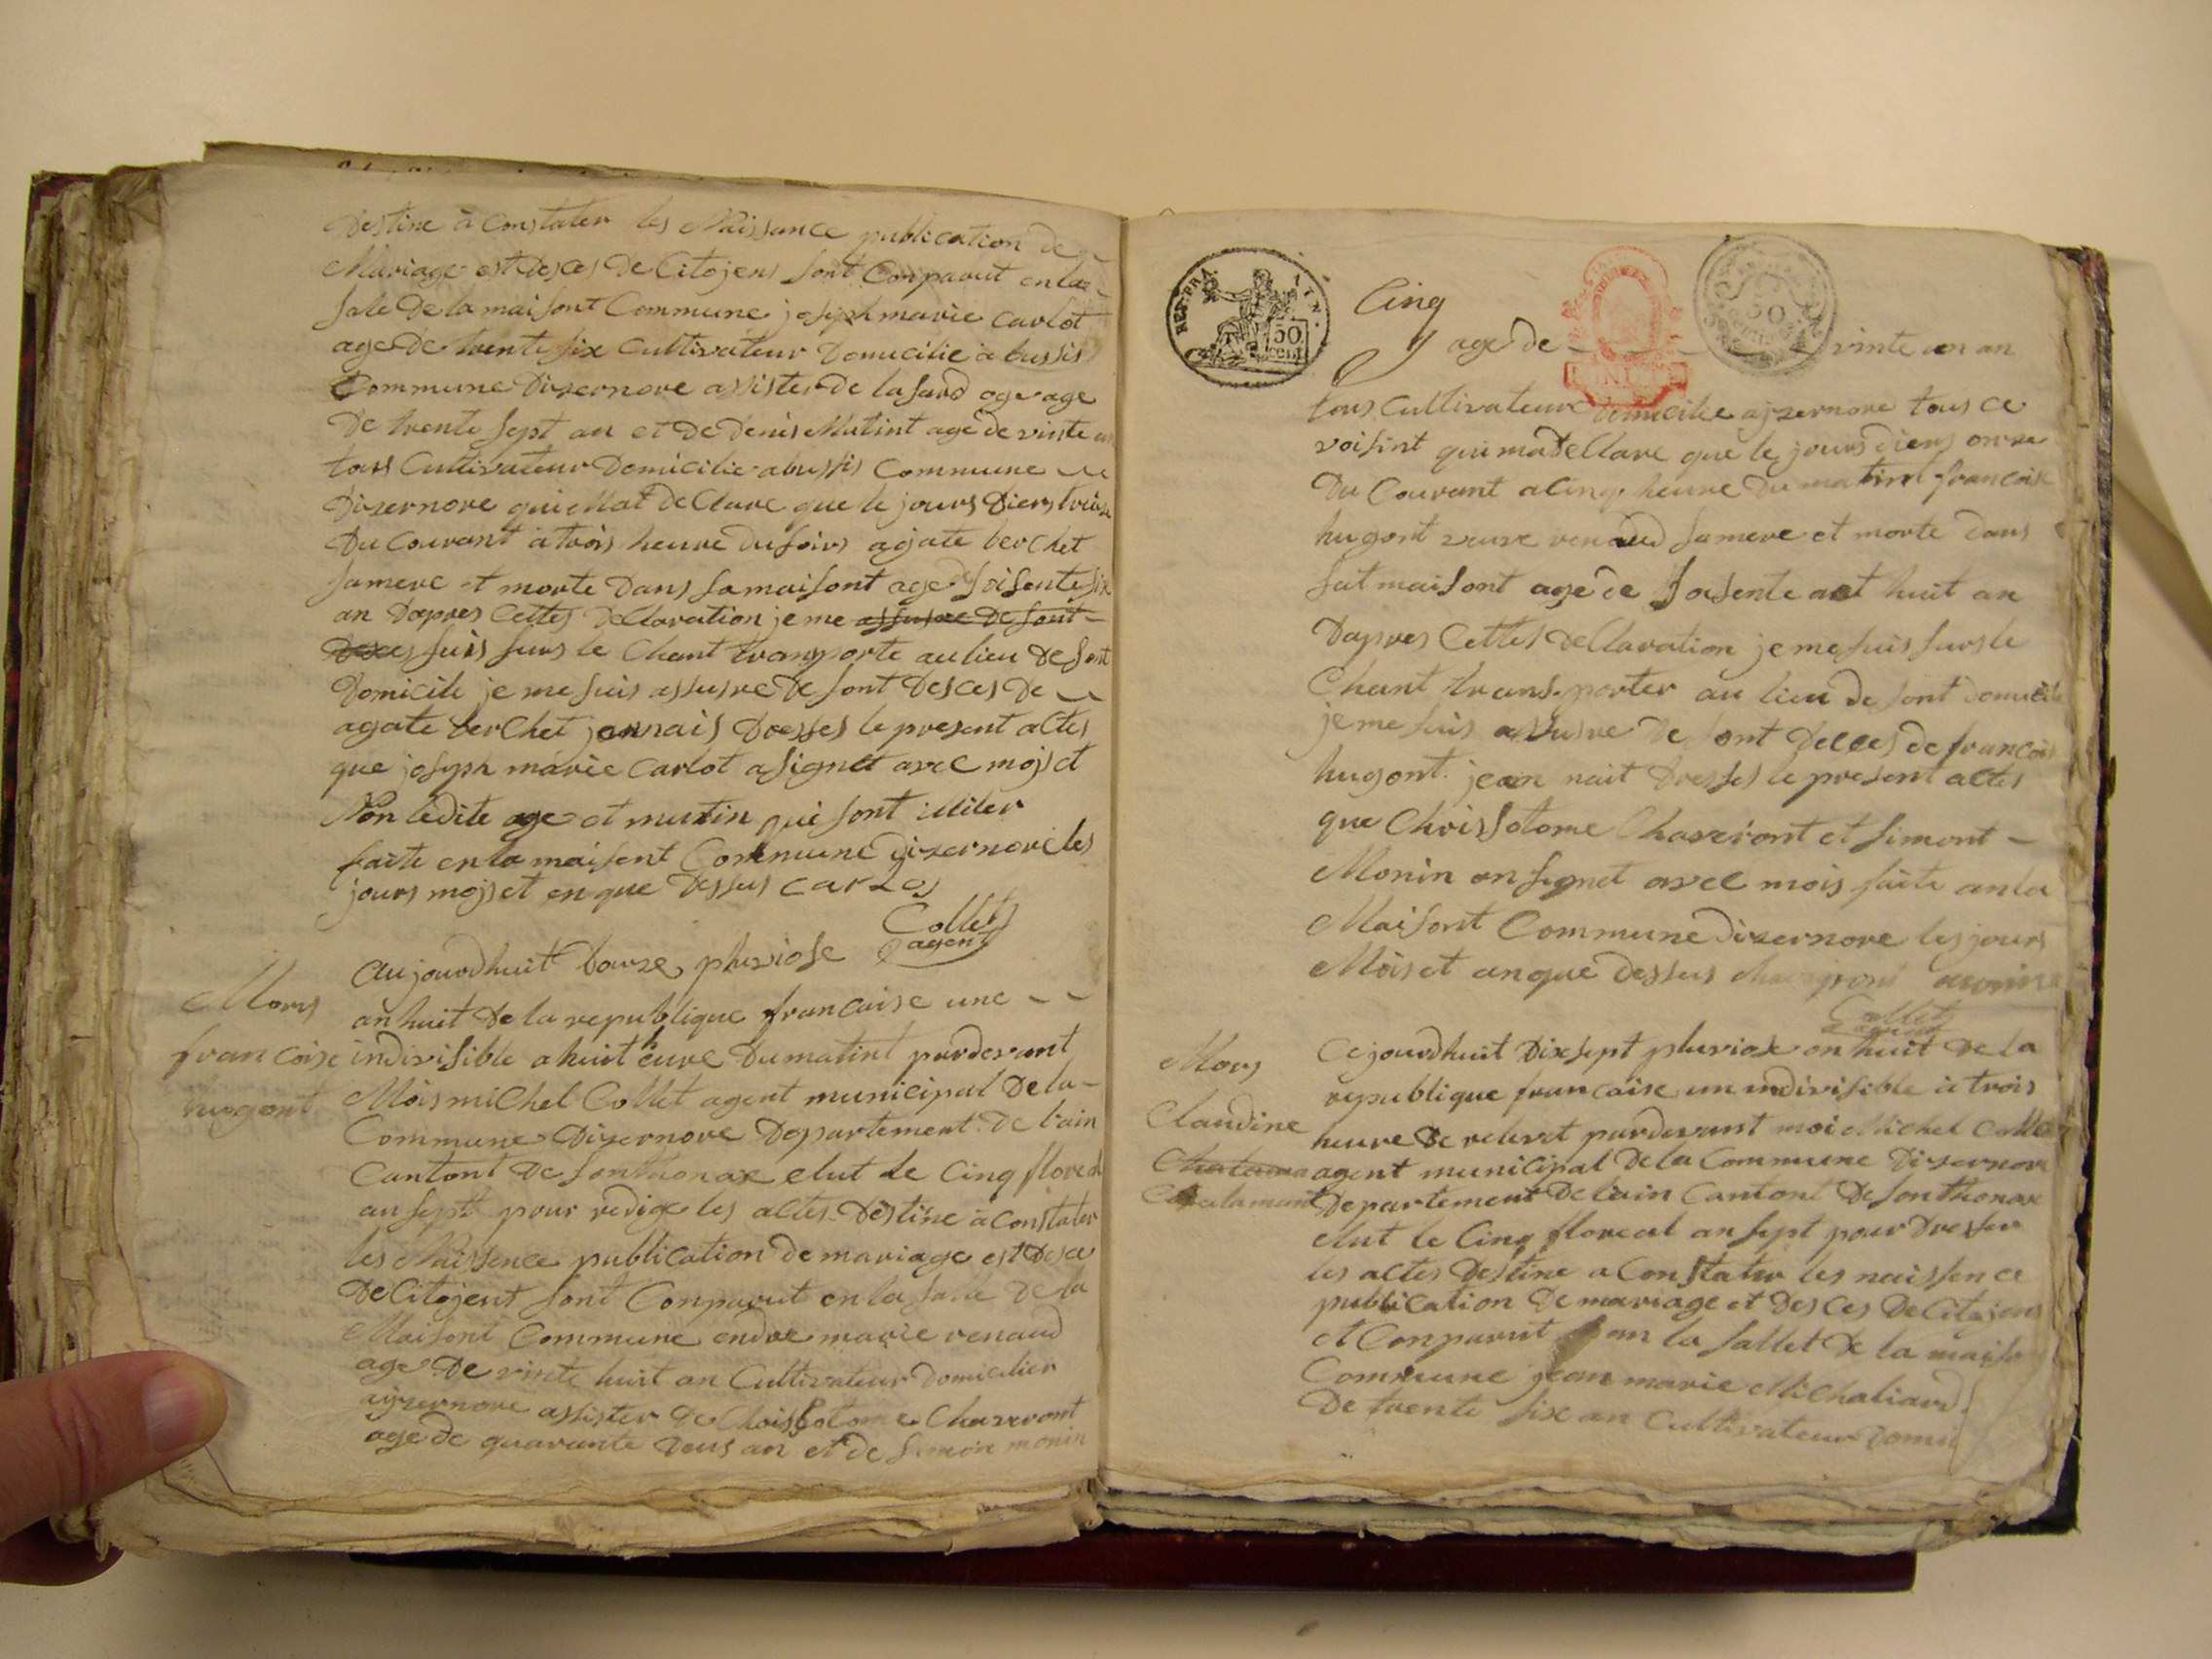 Destine à Constater les Naissance publication de
Mariage est desces de Citojens sont Conparut en la
sale de la maisont Commune joseph marie carlot
age de trente six Cultivateur Domicilie a bussis
Commune Dizernore assister de lafard oge age
De trente sept an et de denis Mutint age de vinte un
tous Cultivateur Domicilie a bussis Commune
Dizernore qui Mat de Clare que le jours Diers treize
Du Courant à trois heure du soirs agate berchet
sa mere et morte Dans sa maisont age de soisente six
an Dapres Cettes DeClaration je me assusre De sont
Desces suis surs le Chant transporte au lieu De sont
Domicile je me suis assusre de sont Desces De
agate berChet jennais Dresses le present actes
que joseph marie Carlot a signet avec mojset
Non ledite age et mutin qui sont illiter
faite en la maisont Commune Dizernore les
jours mojset en que Dessus carlos
Collet
agent
Mors
francoise
hugont
aujourdhuit Douze pluviose
an huit de la republique francaise une
indivisible a huit heure Du matint pardevant
Mois miChel Collet agent municipal De la
Commune Dizernore Departement De lain
Cantont de sonthonax elut le Cinq floreal
an sept pour redige les actes Destine à Constater
les Naissence publication de mariage est Desces
De Citojent sont Conparut en la salle De la
Maisont Commune endre marie renaud
age De vinte huit an Cultivateur Domicilier
ajzernore assister de Choissotome Chaveront
age de quarante Deus an et de simon monin
REP. FRA.
AIN.
50
cent
Cinq
age de vinte un an
tous Cultivateur Domicilie ajzernore tous ce
voisint qui ma deClare que le jours diers onze
Du Courant a Cinq heure Du matint francoise
hugont veuve renaud sa mere et morte Dans
sat maisont age de soisente aet huit an
Dapres Cettes DeClaration je me suis surs le
Chant transporter au lieu de sont Domicile
je me suis assusre de sont Decces de francois
hugont jean nait Dresses le present actes
que Chrissotome Chaveront et simont
Monin on signet avec mois faite anla
Maisont Commune Dizernore les jours
Mois et anque Dessus monin
Collet
agent
Mors
Claudine
Chalamont
Cejourdhuit Dix sept pluviose an huit de la
republique francaise un indivisible à trois
heure De relevet pardevant moi Michel Collet
agent municipal De la Commune Dizernore
Departement De lain Cantont De sonthonax
elut le Cinq floreal an sept pour Dresser
les actes Destine a Constater les naissence
publication De mariage et Desces De Citojens
et Conparut an la sallet De la maiso
Commune jean marie Michaliard
De trente six an Cultivateur Domi